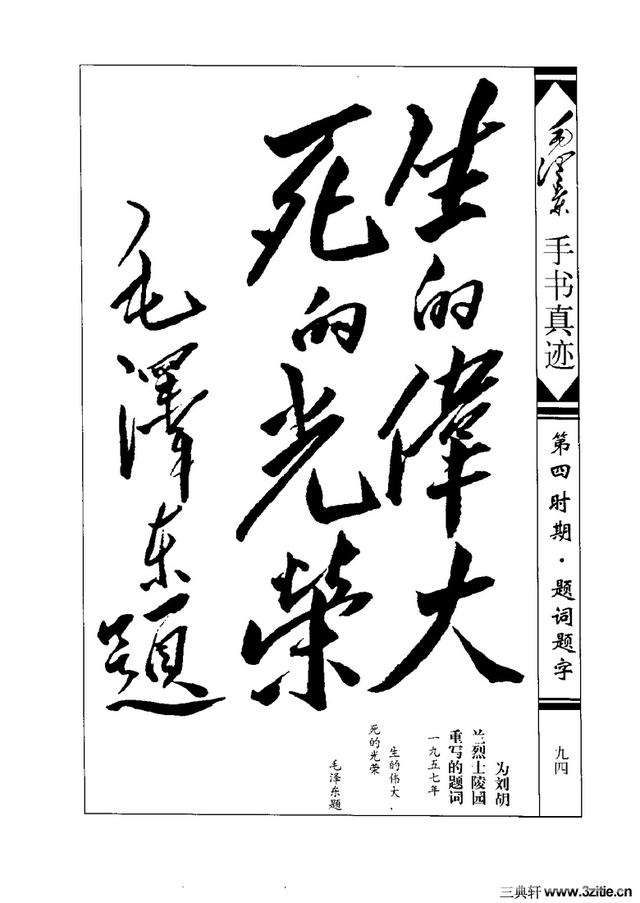 生的偉大
死的光榮
毛澤东題
毛泽东
手书真迹
第四时期·题词题字
九四
为刘胡
兰烈士陵园
重写的题词
一九五七年
生的伟大，
死的光荣
毛泽东题
三典轩 www.3zitie.cn